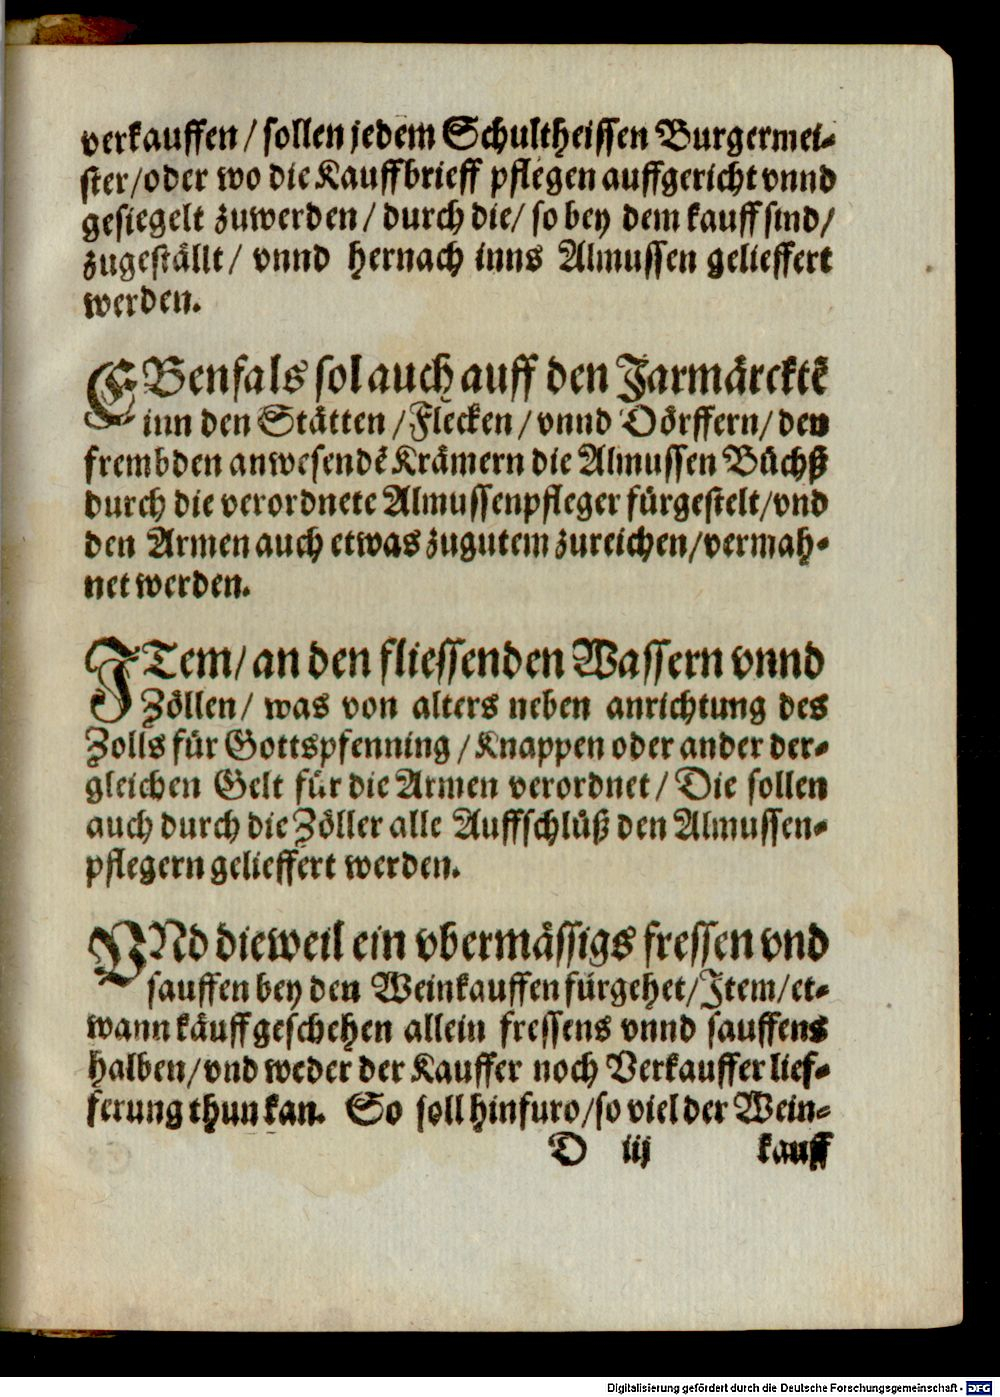 verkauffen / sollen jedem Schultheissen Burgermei-
ster/oder wo die Kauffbrieff pflegen auffgericht vnnd
gesiegelt zuwerden / durch die/ so bey dem kauff sind/
zugeställt/ vnnd hernach inns Almussen gelieffert
werden.
EBenfals sol auch auff den Jarmärcktē
inn den Stätten /Flecken / vnnd Dörffern/ den
frembden anwesendē Krämern die Almussen Büchß
durch die verordnete Almussenpfleger fürgestelt/vnd
den Armen auch etwas zugutem zureichen/vermah-
net werden.
ITem/ an den fliessenden Wassern vnnd
Zöllen/ was von alters neben anrichtung des
Zolls für Gottspfenning / Knappen oder ander der-
gleichen Gelt für die Armen verordnet / Die sollen
auch durch die Zöller alle Auffschlüß den Almussen-
pflegern gelieffert werden.
VNd dieweil ein vbermässigs fressen vnd
sauffen bey den Weinkauffen fürgehet/Item/et-
wann käuff geschehen allein fressens vnnd sauffens
halben/vnd weder der Kauffer noch Verkauffer lief-
ferung thun kan. So soll hinfuro/so viel der Wein-
D iij kauff
Digitalisierung gefördert durch die Deutsche Forschungsgemeinschaft - DFG